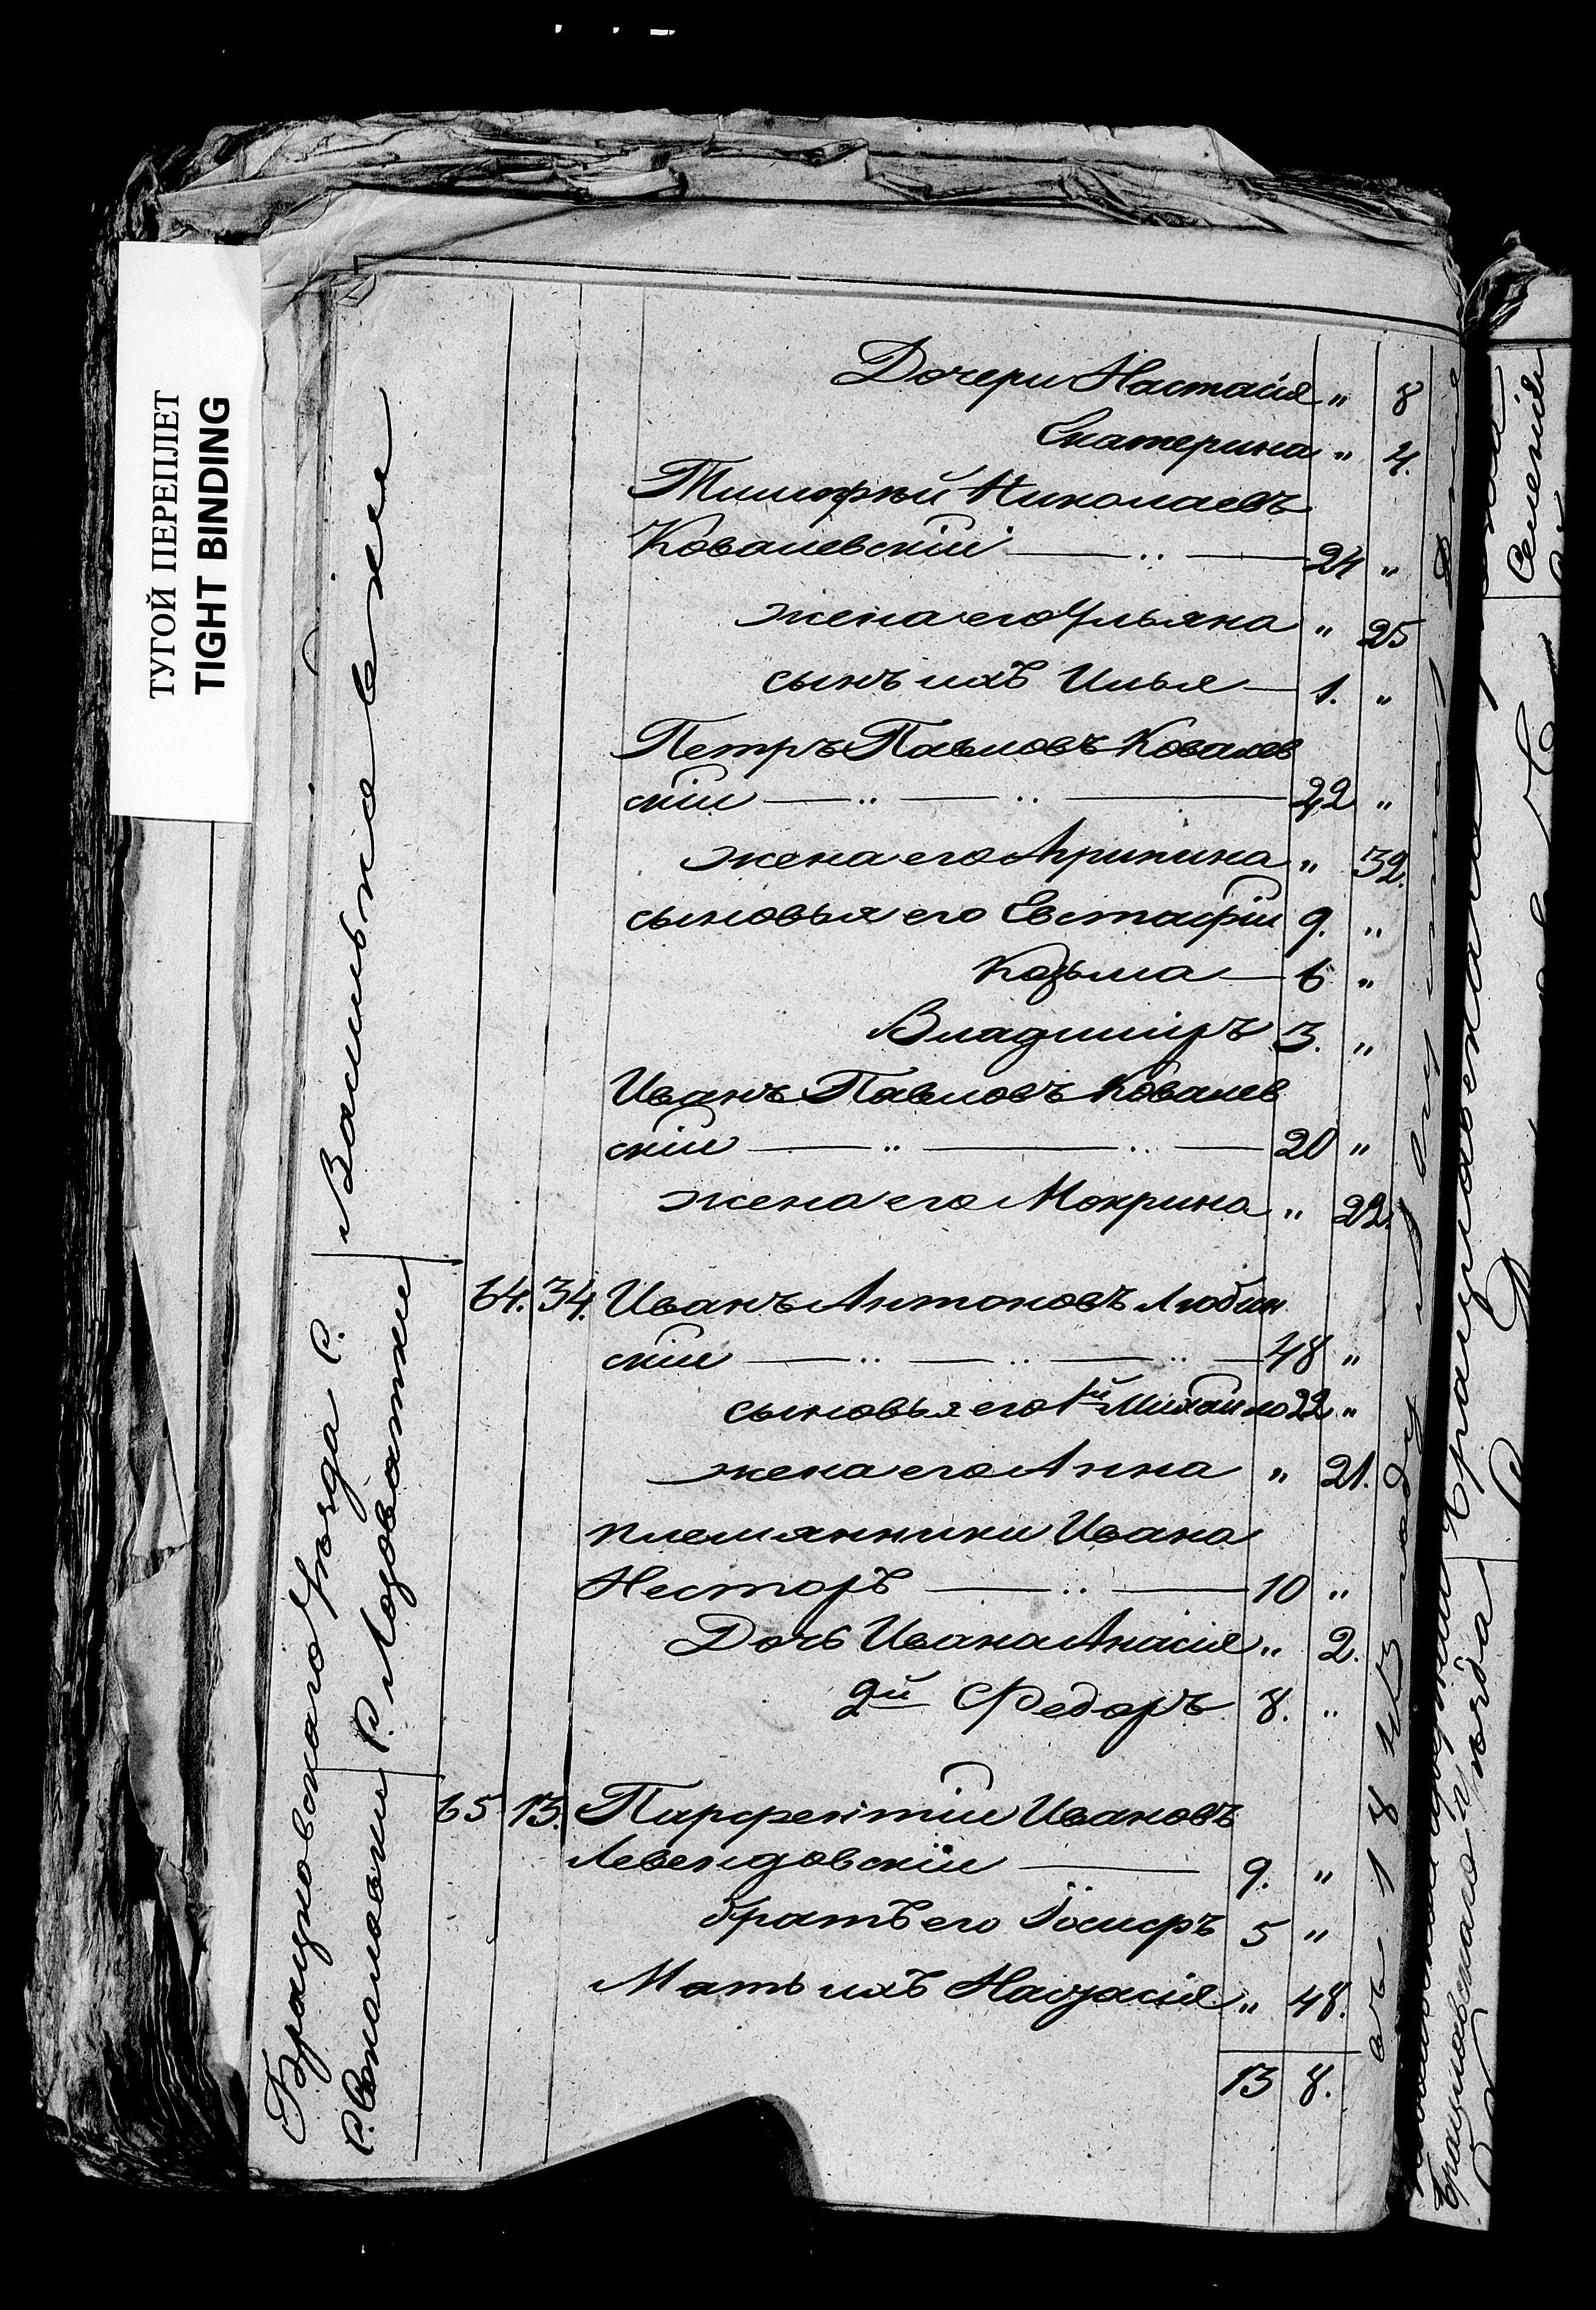 ТУГОЙ ПЕРЕПЛЕТ
TIGHT BINDING
Дочери Настасія " 8
Екатерина " 4.
Тимофѣй Николаевъ
Ковалевскій 24 "
жена его Ульяна " 25
сынъ ихъ Илья 1. "
Петръ Павловъ Ковалев
скій 42 "
жена его Агрипина " 32.
сыновья его Евстафій 9. "
Козьма 6 "
Владиміръ 3. "
Иванъ Павловъ Ковалев
скій 20 "
жена его Мокрина " 22.
64. 34. Иванъ Антоновъ Любин
скій 48 "
сыновья его 1й Михайло 22 "
жена его Анна " 21.
племянники Ивана
Несторъ 10 "
Дочь Ивана Анасія " 2.
2й Федоръ 8. "
65 13. Парфентій Ивановъ
Левендовскій 9. "
братъ его Іосифъ 5 "
Мать ихъ Настасія " 48.
13 8.
Брацловскаго Уѣзда С.
С. Соколовки С. Лодоватки
Селенія